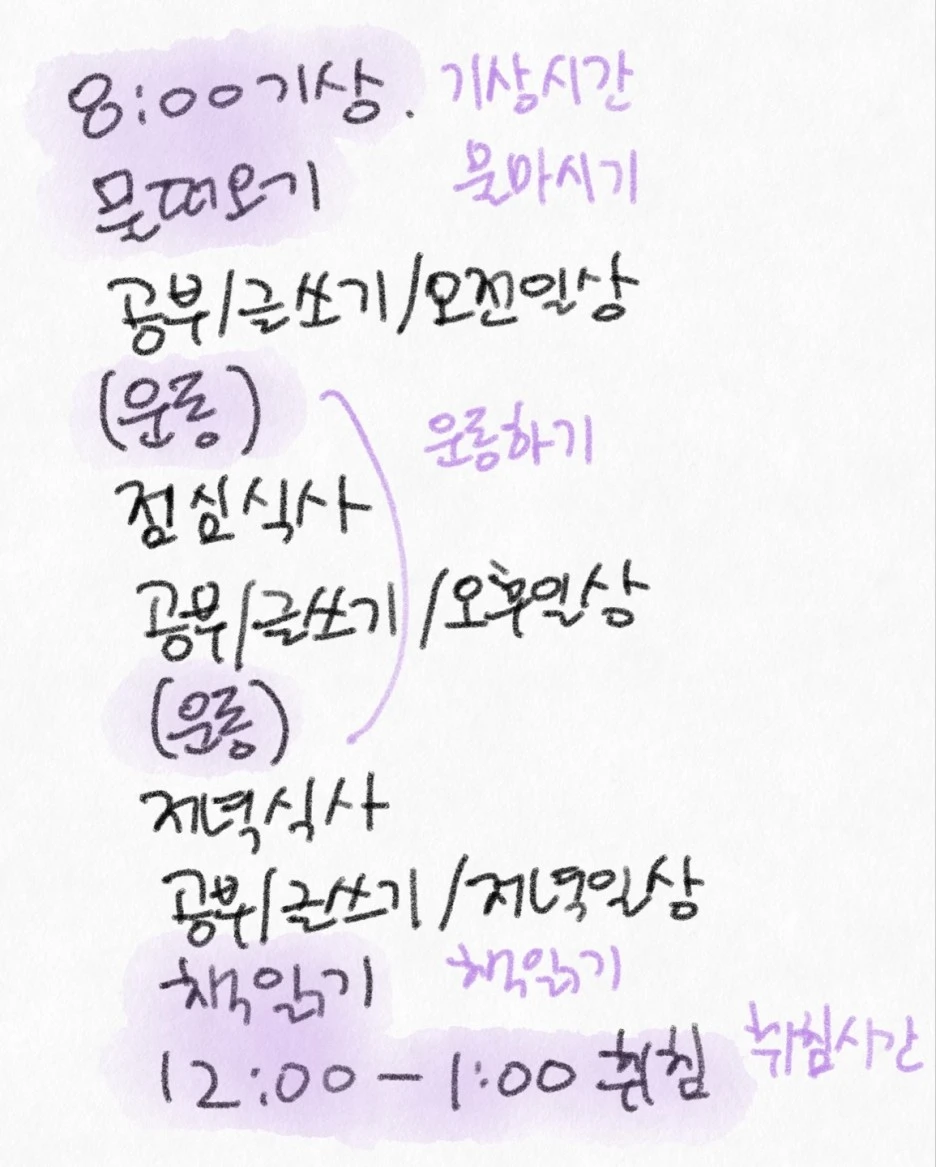 8:00 기상. 기상시간
물떠오기 물마시기
공부/글쓰기/오전일상
(운동)
운동하기
점심식사
공부/글쓰기/오후일상
(운동)
저녁식사
공부/글쓰기/저녁일상
책읽기 책읽기
12:00-1:00 취침 취침시간